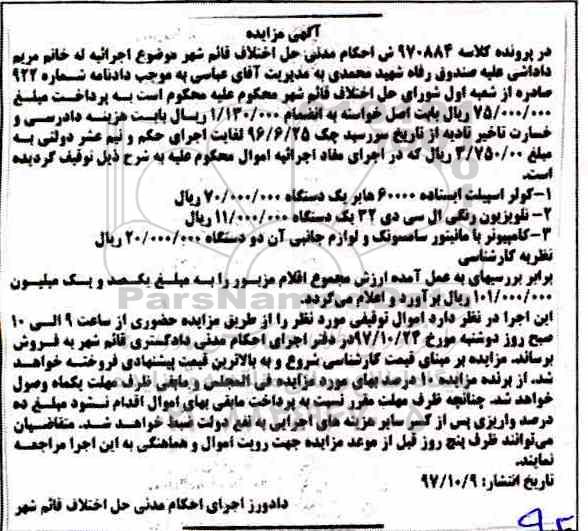 آگهی مزایده
در پرونده کلاسه ۹۷۰۸۸۴ ش احکام مدنی حل اختلاف قائم شهر موضوع اجرائیه له خانم مریم
داداشی علیه صندوق رفاه شهید محمدی به مدیریت آقای عباسی به موجب دادنامه شماره ۹۲۲
صادره از شعبه اول شورای حل اختلاف قائم شهر محکوم علیه محکوم است به پرداخت مبلغ
۷۵/۰۰۰/۰۰۰ ریال بابت اصل خواسته به انضمام ۱/۱۳۰/۰۰۰ ریال بابت هزینه دادرسی و
خسارت تاخیر تادیه از تاریخ سررسید چک ۹۶/۶/۲۵ لغایت اجرای حکم و نیم عشر دولتی به
مبلغ ۳/۷۵۰/۰۰ ریال که در اجرای مفاد اجرائیه اموال محکوم علیه به شرح ذیل توقیف گردیده
است.
۱-کولر اسپیلت ایستاده ۶۰۰۰۰ هایر یک دستگاه ۷۰/۰۰۰/۰۰۰ ریال
۲- تلویزیون رنگی ال سی دی ۳۲ یک دستگاه ۱۱/۰۰۰/۰۰۰ ریال
۳-کامپیوتر با مانیتور سامسونگ و لوازم جانبی آن دو دستگاه ۲۰/۰۰۰/۰۰۰ ریال
نظریه کارشناسی
برابر بررسیهای به عمل آمده ارزش مجموع اقلام مزبور را به مبلغ یکصد و یک میلیون
۱۰۱/۰۰۰/۰۰۰ ریال برآورد و اعلام می‌گردد.
این اجرا در نظر دارد اموال توقیفی مورد نظر را از طریق مزایده حضوری از ساعت ۹ الی ۱۰
صبح روز دوشنبه مورخ ۹۷/۱۰/۲۴در دفتر اجرای احکام مدنی دادگستری قائم شهر به فروش
برساند. مزایده بر مبنای قیمت کارشناسی شروع و به بالاترین قیمت پیشنهادی فروخته خواهد
شد. از برنده مزایده ۱۰ درصد بهای مورد مزایده فی المجلس و مابقی ظرف مهلت یکماه وصول
خواهد شد. چنانچه ظرف مهلت مقرر نسبت به پرداخت مابقی بهای اموال اقدام نشود مبلغ ده
درصد واریزی پس از کسر سایر هزینه های اجرایی به نفع دولت ضبط خواهد شد. متقاضیان
می‌توانند ظرف پنج روز قبل از موعد مزایده جهت رویت اموال و هماهنگی به این اجرا مراجعه
نمایند.
تاریخ انتشار: ۹۷/۱۰/۹
دادورز اجرای احکام مدنی حل اختلاف قائم شهر